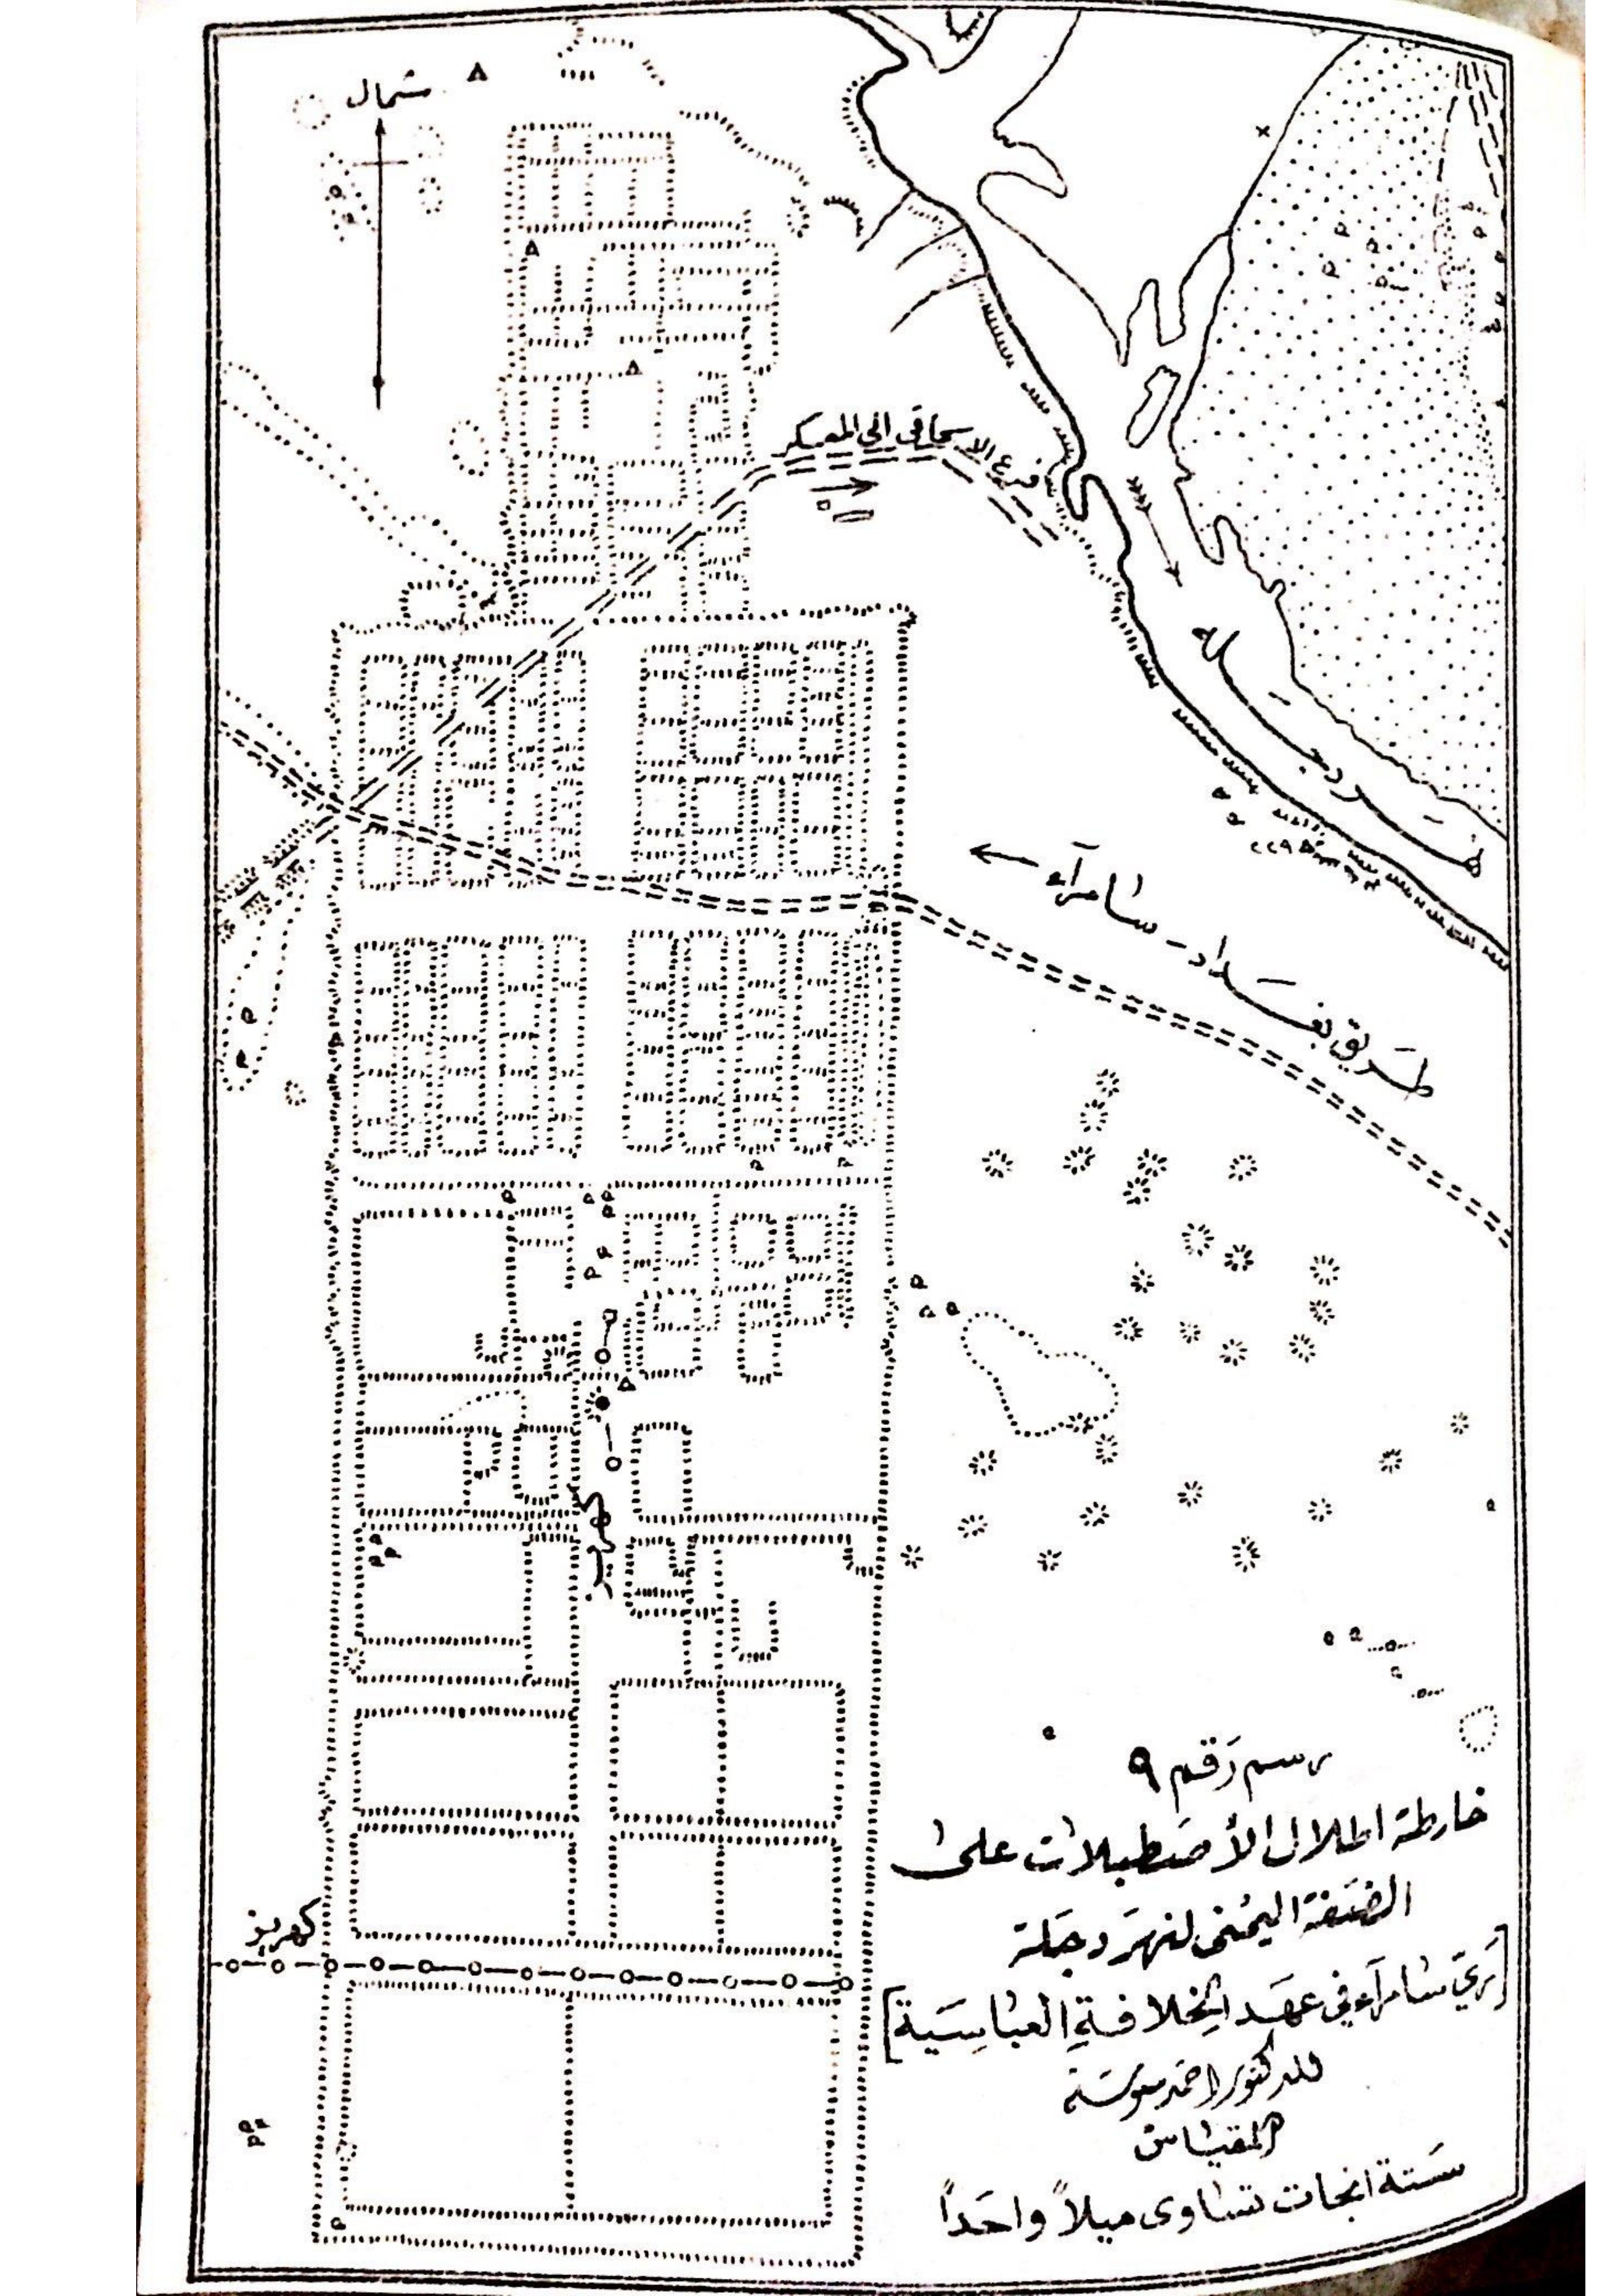 شمال
فرع الاسحاقي الى المعسكر
نهر دجلة
طريق بغداد - سامراء
كهريز
كهريز
رسم رقم ٩
خارطة اطلال الأصطبلات على
الضفة اليمنى لنهر دجلة
[ري سامراء في عهد الخلافة العباسية]
للدكتور احمد سوسة
المقياس
ستة انجات تساوى ميلاً واحداً